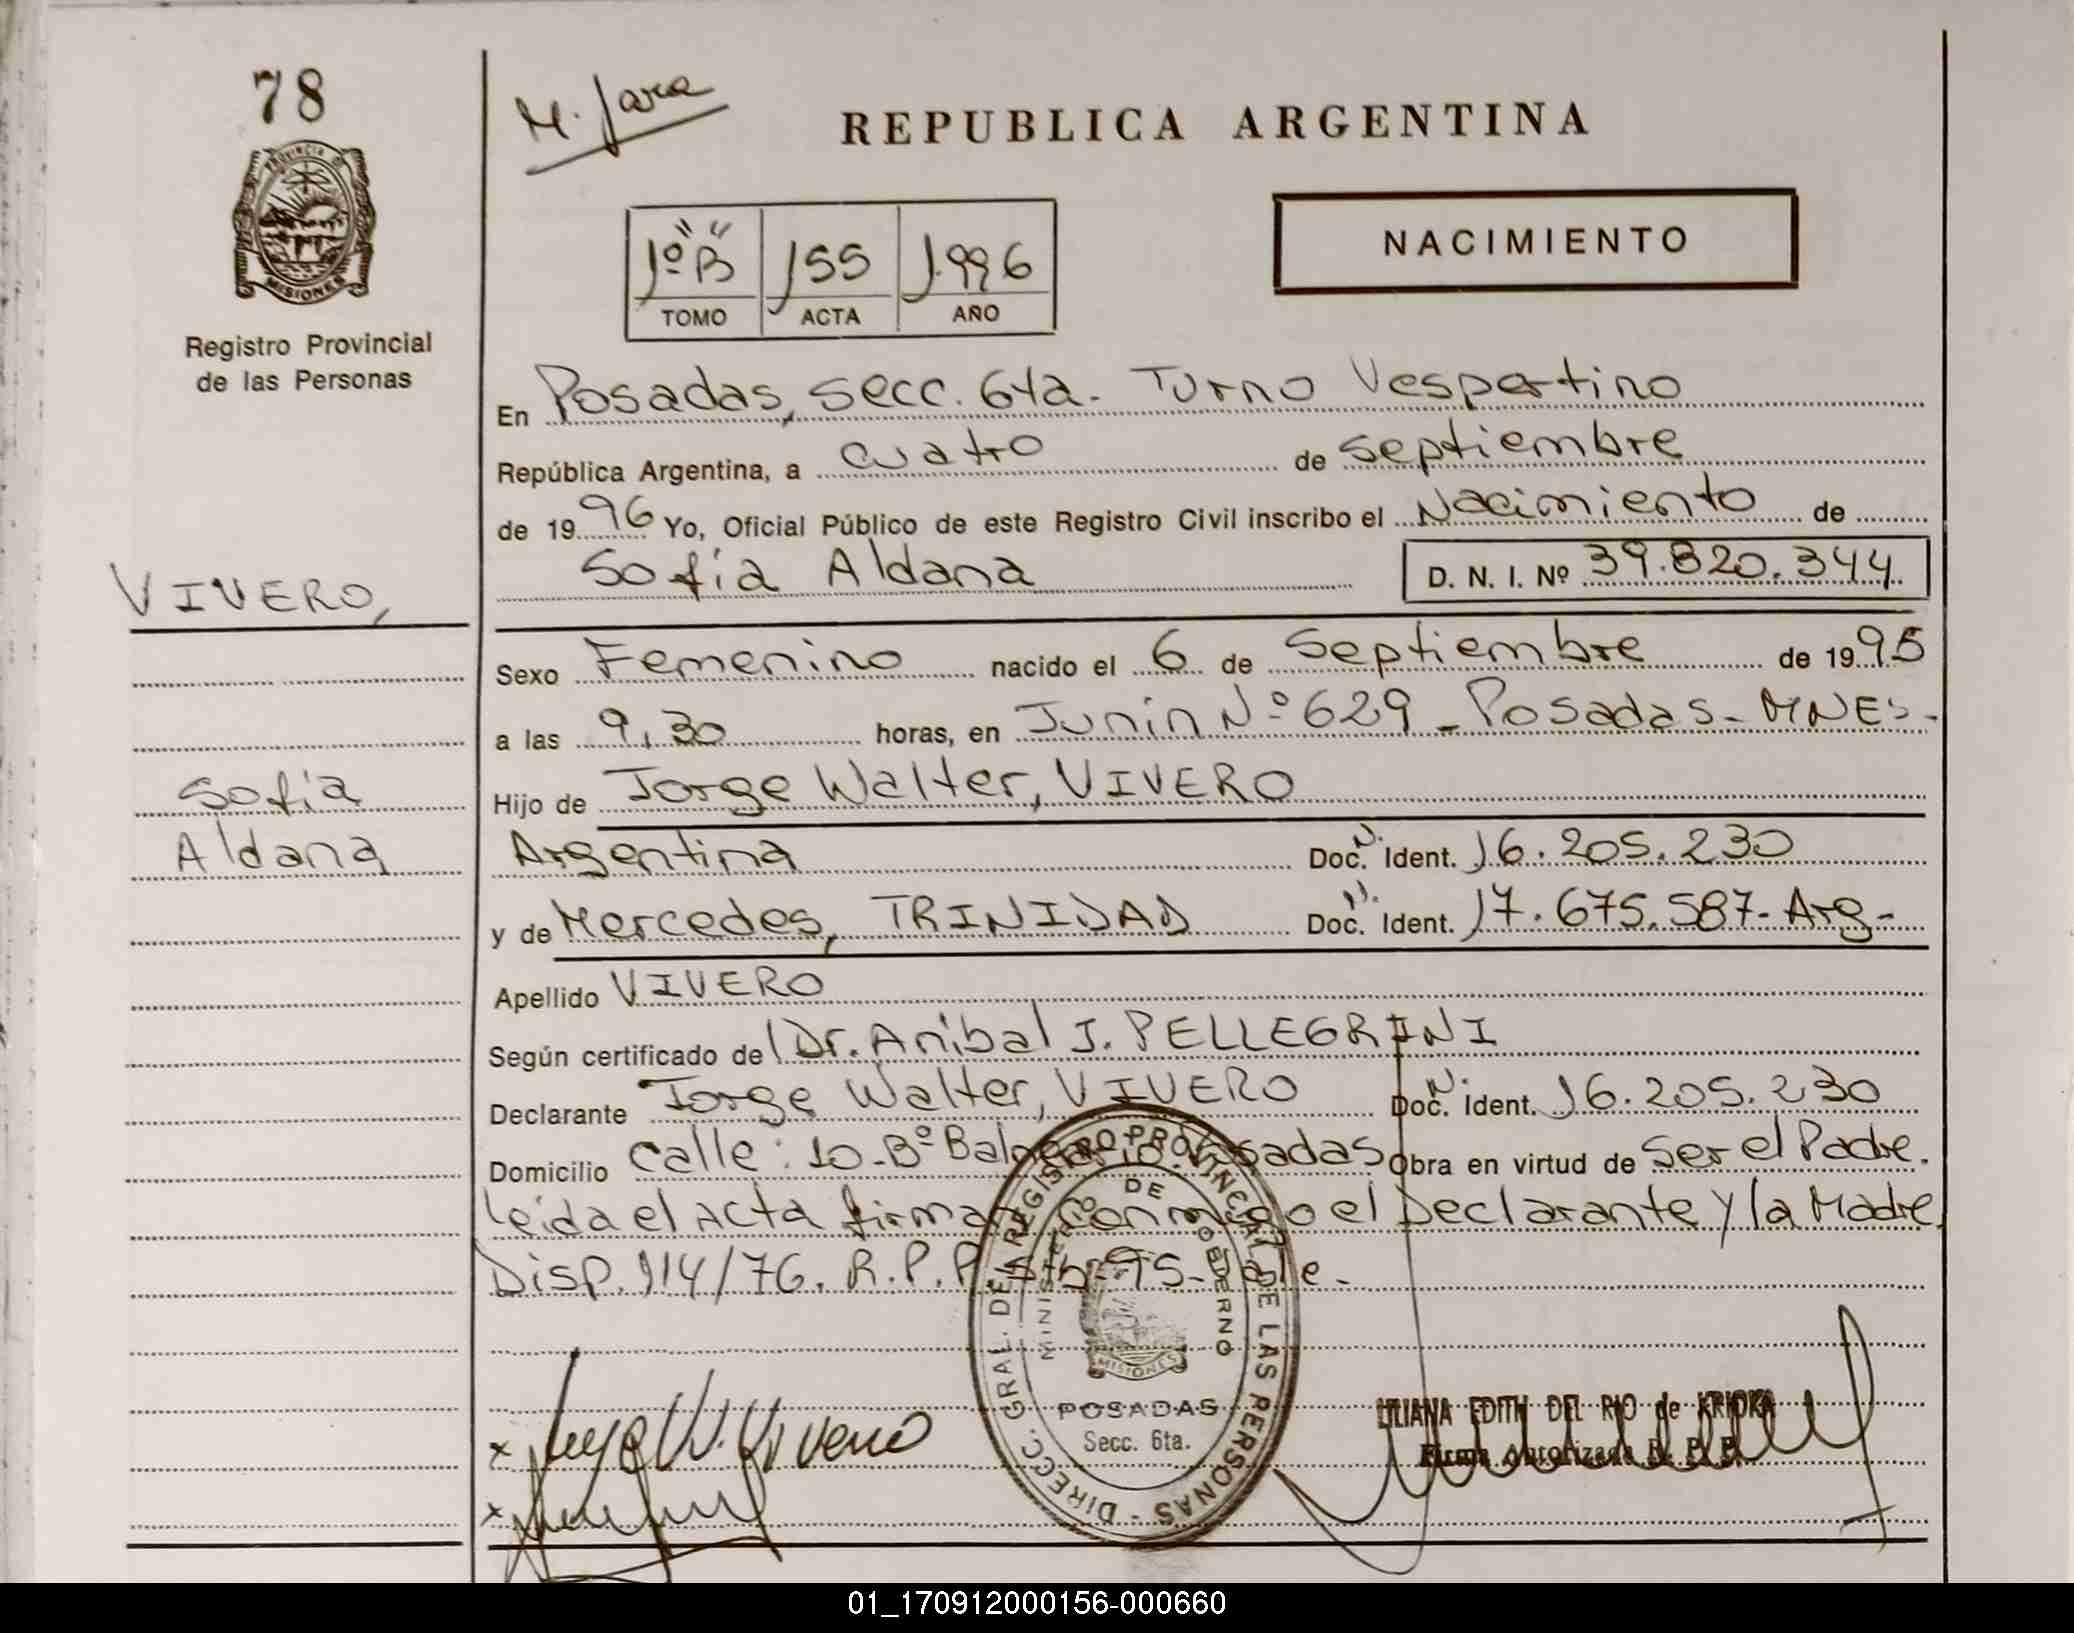 78
M. Jara
REPUBLICA ARGENTINA
PROVINCIA DE
MISIONES
Registro Provincial
de las Personas
1º "B" 155 1.996
TOMO ACTA AÑO
NACIMIENTO
En Posadas, Secc. 6ta. Turno Vespertino
República Argentina, a cuatro de Septiembre
de 1996 Yo, Oficial Público de este Registro Civil inscribo el Nacimiento de
Sofía Aldana D. N. I. Nº 39.820.344
VIVERO,
Sofía
Aldana
Sexo Femenino nacido el 6 de Septiembre de 1995
a las 9,30 horas, en Junín Nº 629 - Posadas - MNES-
Hijo de Jorge Walter, VIVERO
Argentina Doc. N. Ident. 16.205.230
y de Mercedes, TRINIDAD Doc. N. Ident. 17.675.587- Arg-
Apellido VIVERO
Según certificado del Dr. Anibal J. PELLEGRINI
Declarante Jorge Walter, VIVERO Doc. N Ident. 16.205.230
Domicilio calle: 10-Bº Posadas Obra en virtud de Ser el Padre.
Leída el Acta firman conmigo el Declarante y la Madre,
Disp. 114/76. R.P.P.
DIRECC. GRAL. DEL REGISTRO PROVINCIAL DE LAS PERSONAS -
MINISTERIO DE GOBIERNO
MISIONES
POSADAS
Secc. 6ta.
x Jorge W. Vivero
x
LILIANA EDITH DEL RIO de
Firma Autorizada R. P. P.
01_170912000156-000660